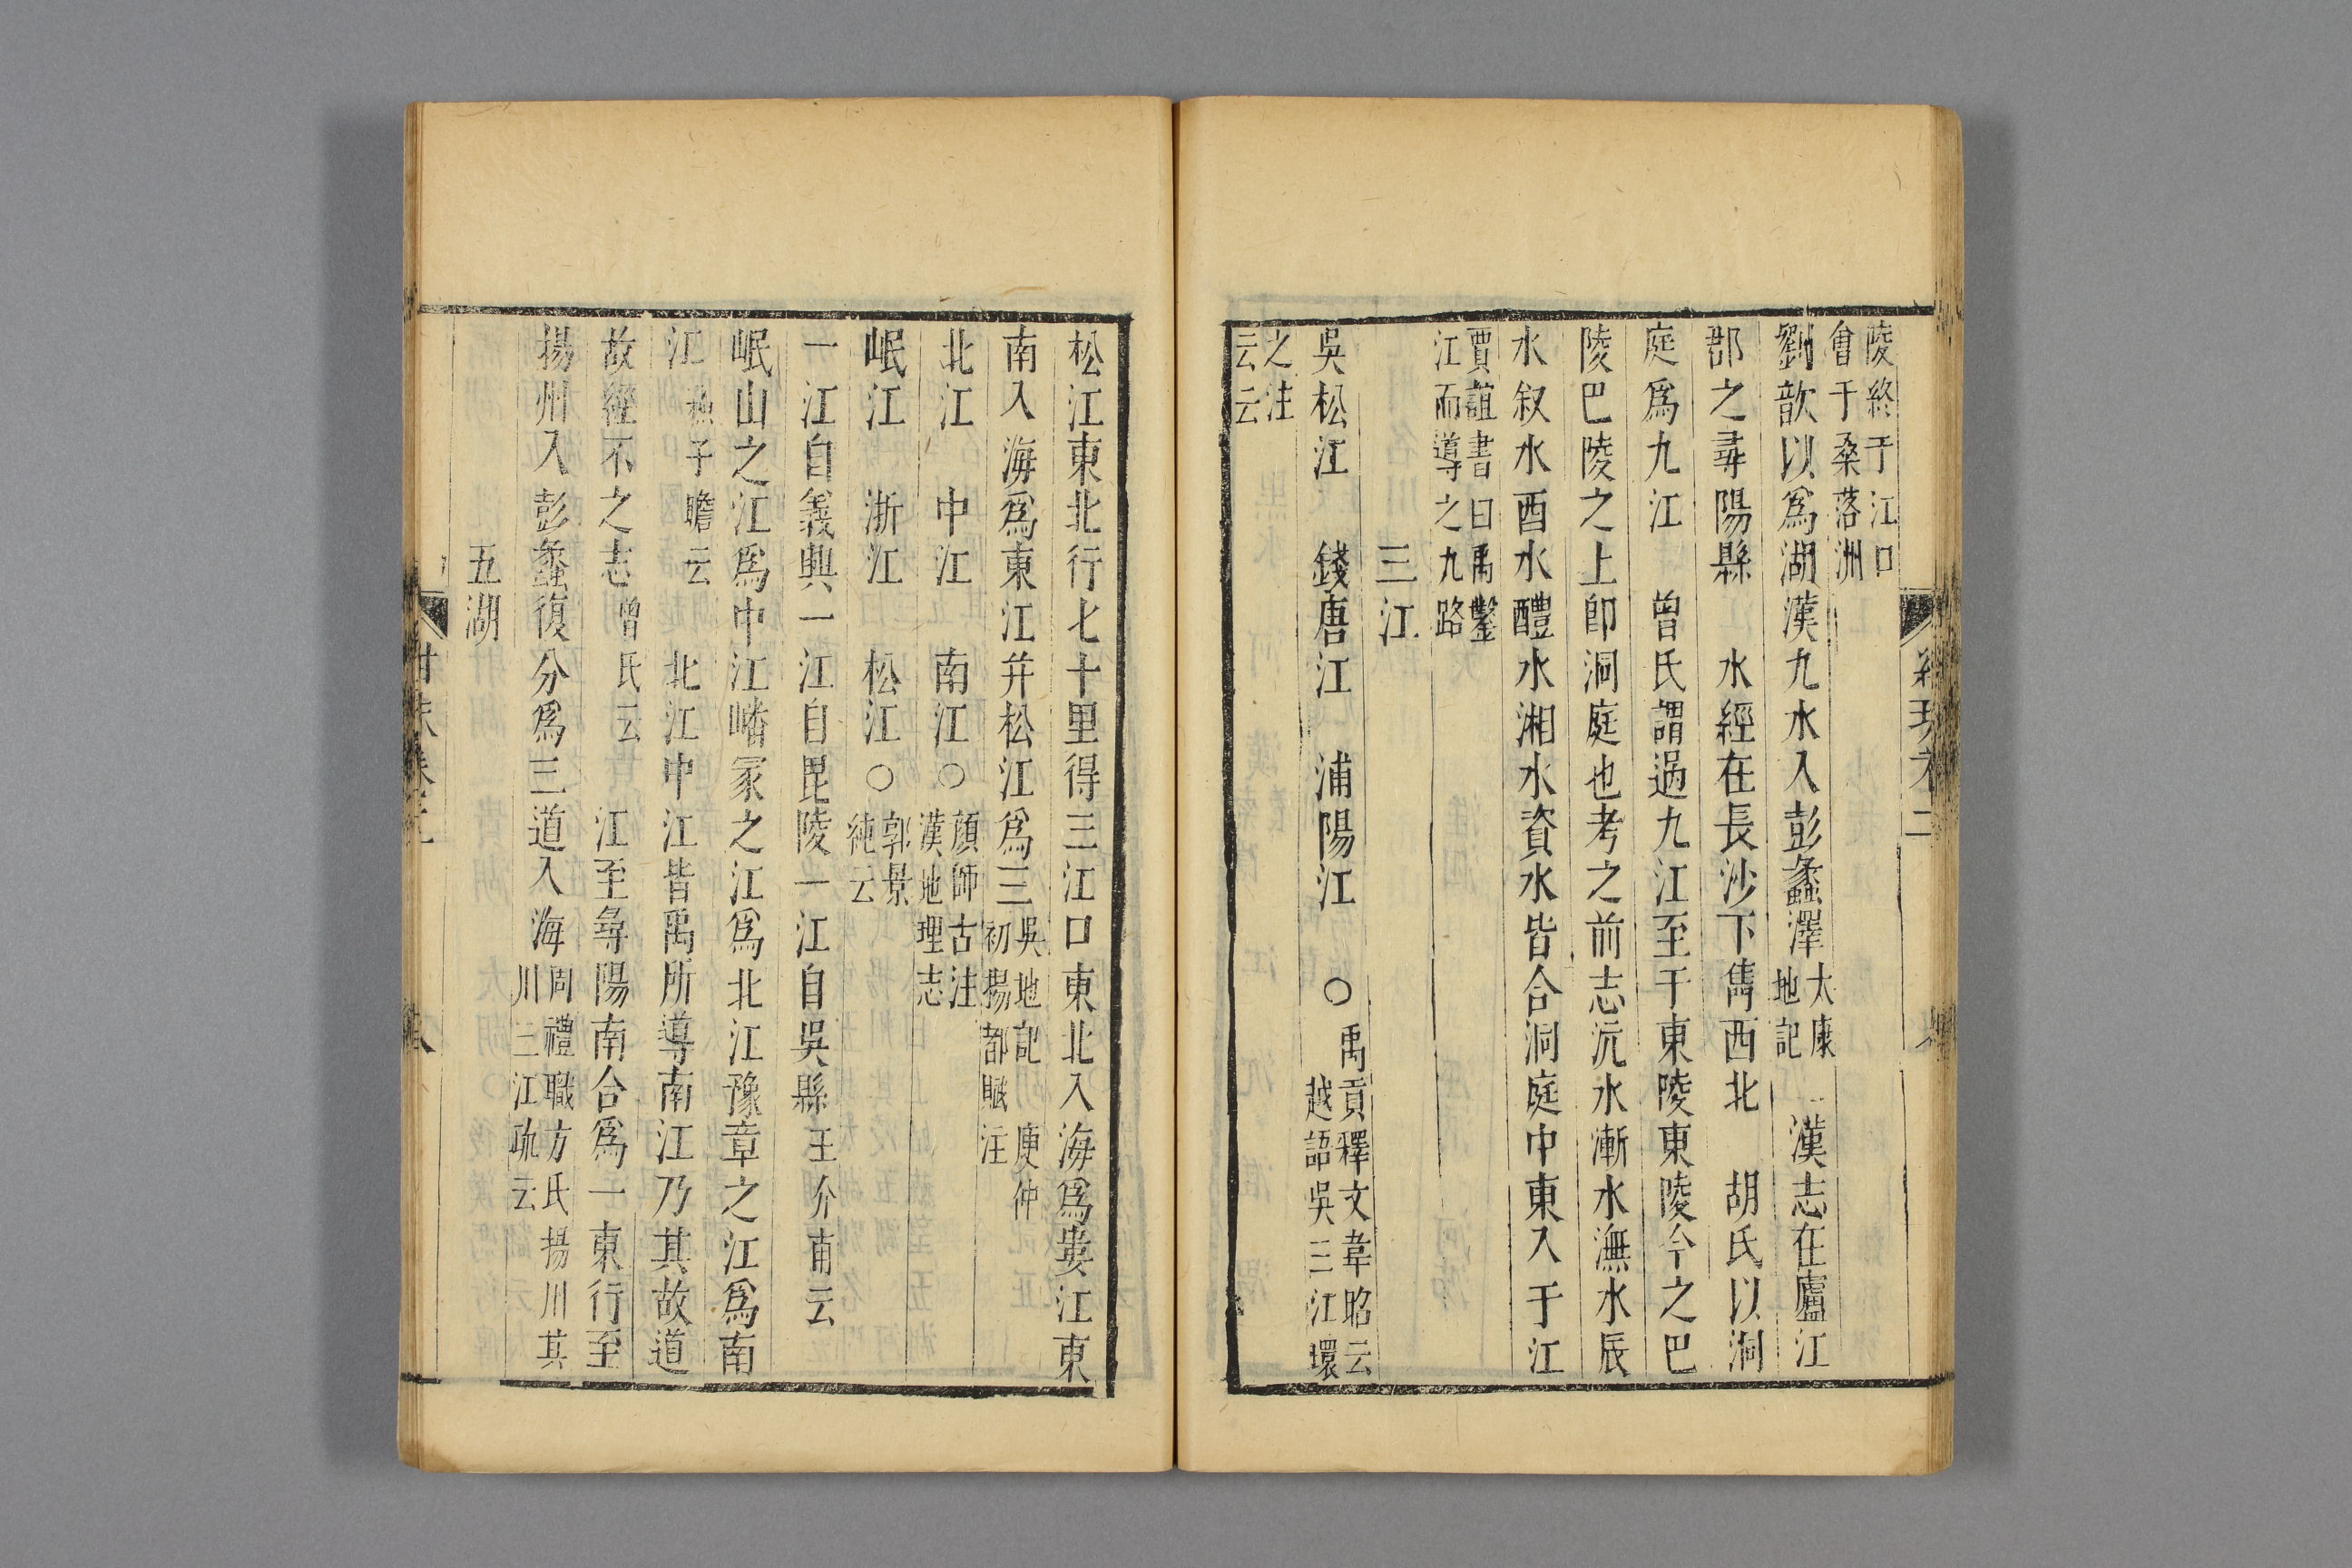 陵終于江口
會于桑落洲
劉歆以爲湖漢九水入彭蠡澤太康地記 漢志在廬江
郡之尋陽縣 水經在長沙下雋西北 胡氏以洞
庭爲九江 曾氏謂過九江至于東陵東陵今之巴
陵巴陵之上卽洞庭也考之前志沅水漸水潕水辰
水叙水酉水醴水湘水資水皆合洞庭中東入于江
賈誼書曰禹鑿
江而導之九路
三江
吳松江 錢唐江 浦陽江 ○禹貢釋文韋昭云
越語吳三江環
之注
云云
松江東北行七十里得三江口東北入海爲婁江東
南入海爲東江并松江爲三吳地記 庾仲
初揚都賦注
北江 中江 南江○顏師古注
漢地理志
岷江 浙江 松江○郭景
純云
一江自義興一江自毘陵一江自吳縣王介甫云
岷山之江爲中江嶓冢之江爲北江豫章之江爲南
江子瞻云 北江中江皆禹所導南江乃其故道
故經不之志曾氏云 江至尋陽南合爲一東行至
揚州入彭蠡復分爲三道入海周禮職方氏揚川其
川三江疏云
五湖